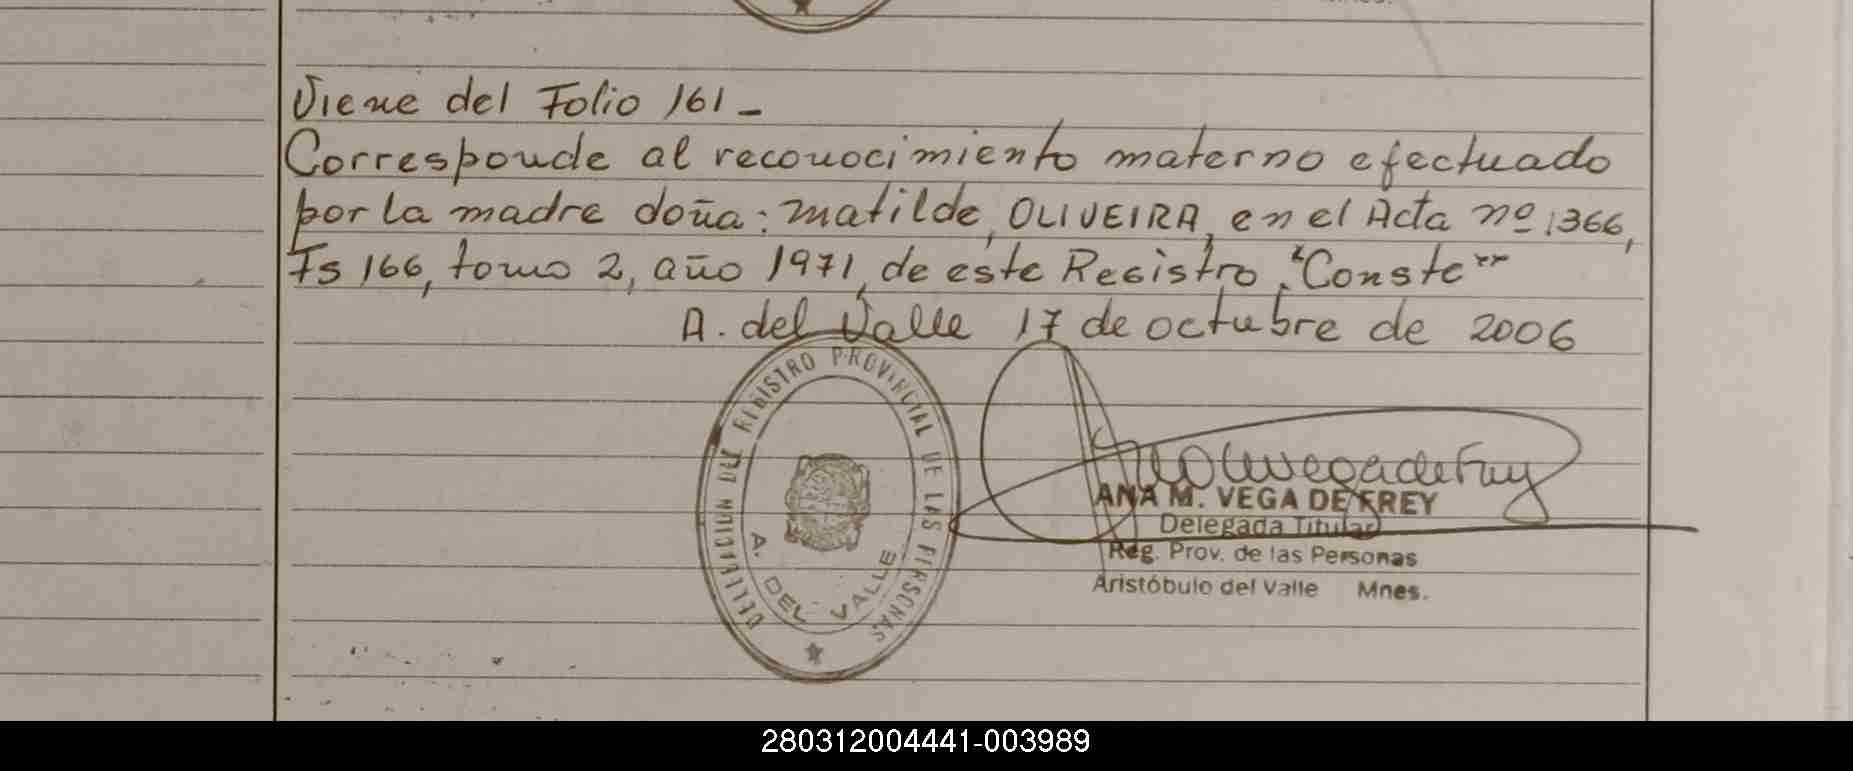 Viene del Folio 161 -
Corresponde al reconocimiento materno efectuado
por la madre doña: Matilde, OLIVEIRA, en el Acta nº 1366,
Fs 166, tomo 2, año 1971, de este Registro. "Conste"
A. del Valle 17 de octubre de 2006
DELEGACION DEL REGISTRO PROVINCIAL DE LAS PERSONAS
A. DEL VALLE
ANA M. VEGA DE FREY
Delegada Titular
Reg. Prov. de las Personas
Aristóbulo del Valle Mnes.
280312004441-003989